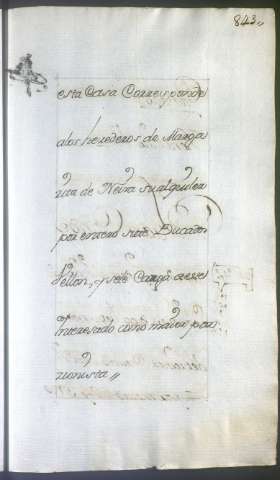 843,,
esta Casa Corresponde
alos herederos de Marga
rita de Neira su alquiler
por entero siete Ducados
Vellon, y sele Carga a este
Interesado como maior por
zionista,,